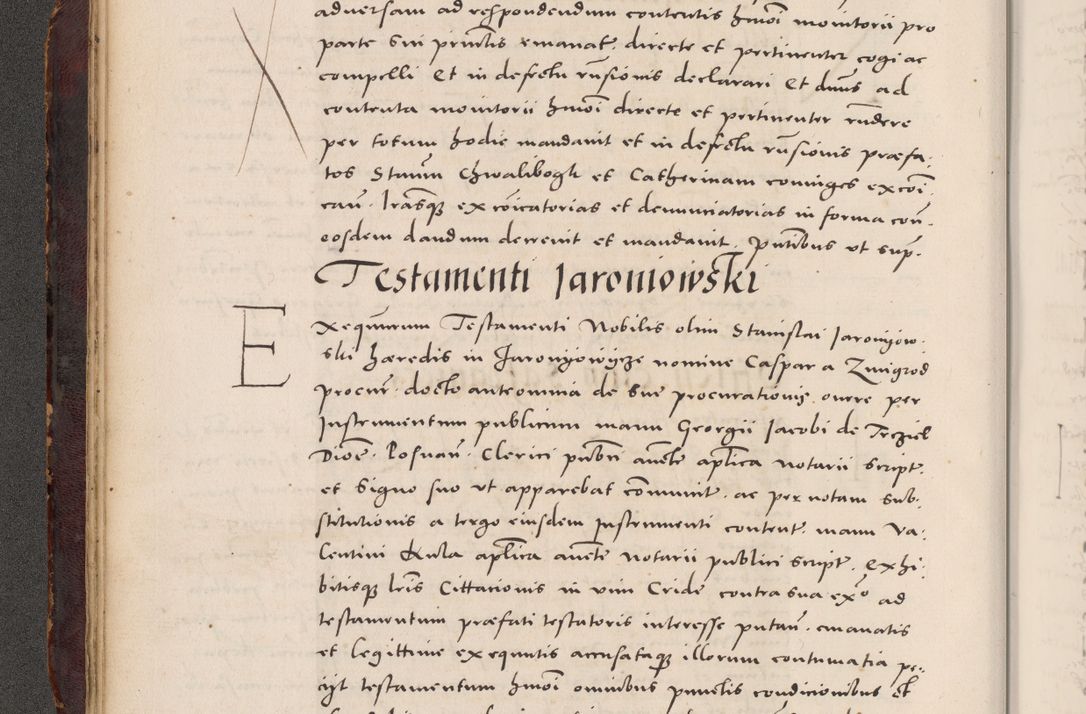 adversam ad respondendum contentis hmoi monitorii pro
parte sui princlis emanat. directe et pertinenter cogi ac
compelli Et in defectu rnsionis declarari Et dnus ad
contenta monitorii hmoi directe et pertinenter rndere
per totum hodie mandavit et in defectu rnsionis præfa.
tos Stanm Chwalibogk et Catherinam coniuges excoi.
can. lrasque excoicatorias et denunciatorias in forma con.
eosdem dandum decrevit et mandavit. Pntibus ut sup.
Testamenti Jaroniowski
Exequutorum Testamenti Nobilis olim Stanislai Jaroniyow.
ski hæredis in Jaronyowycze nomine Caspar a Zmigrod
procur. docto anteomnia de sue procurationis onere per
Instrumentum publicum manu Georgii Jacobi de Trcziel
Dioe. Posnan. Clerici publi aucte aplica notarii script.
et signo suo ut apparebat communit. ac per notam sub.
stitutionis a tergo eiusdem instrumenti content. manu Va.
lentini Kula aplica aucte notarii publici script. exhi.
bitisque lris Cittacionis in vim Cride contra sua exo ad
testamentum præfati testatoris interesse putan. emanatis
et legittime exequutis accusataque illorum contumatia pe.
ciit testamentum hmoi omnibus punctis condicionibus et